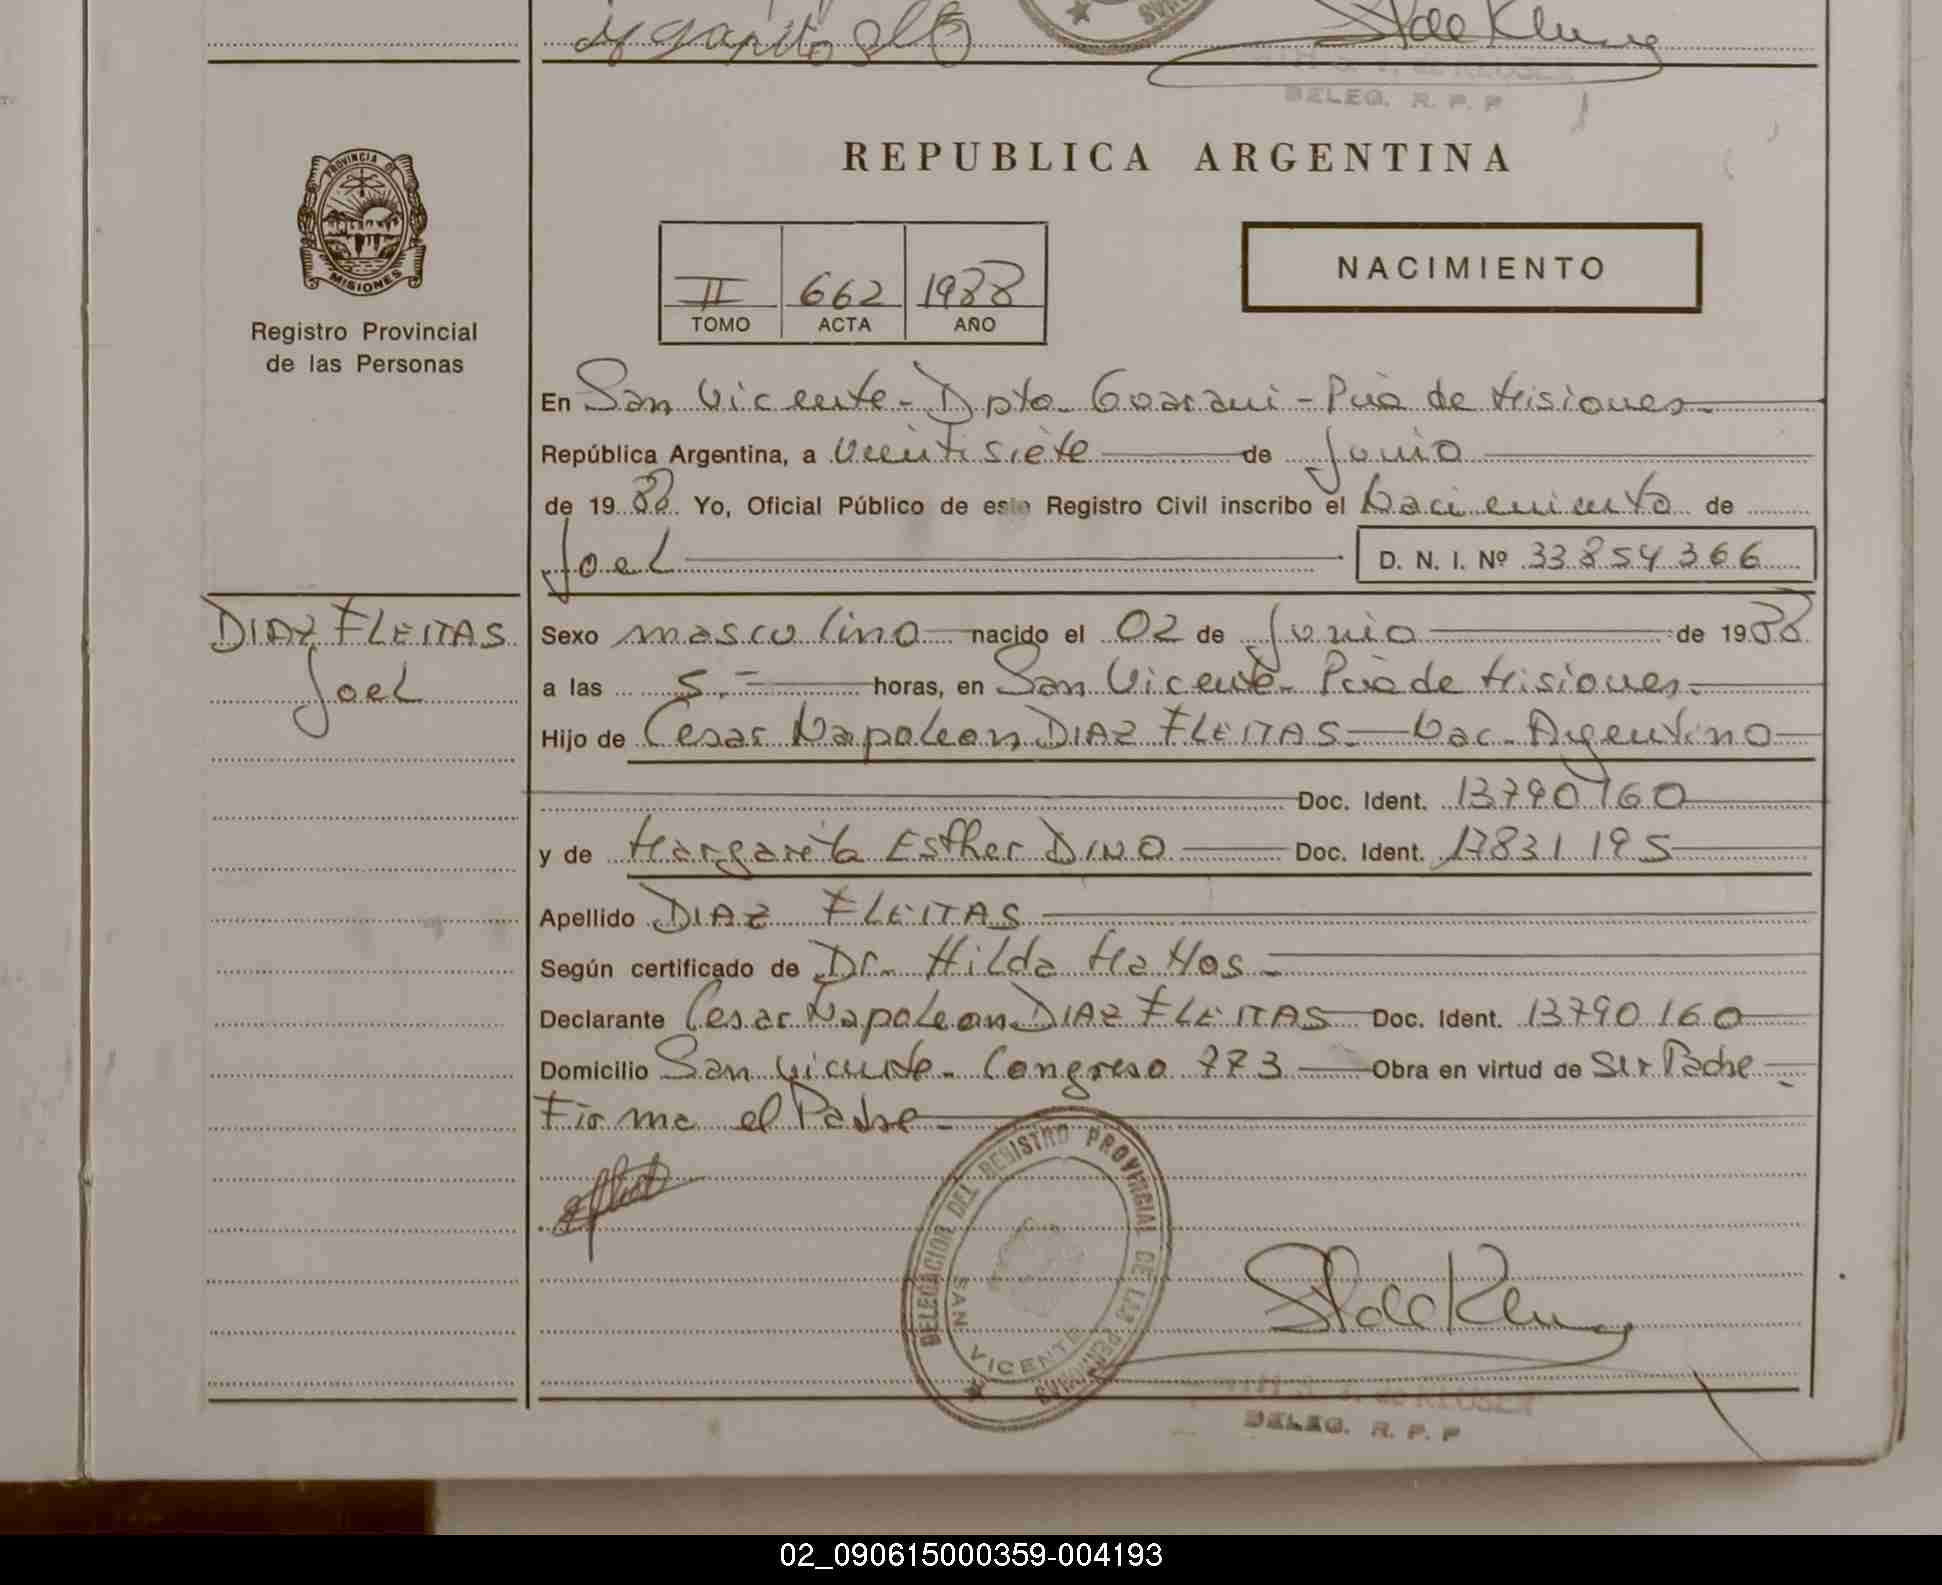 y gapito
DELEG. R. P. P
PROVINCIA DE
MISIONES
Registro Provincial
de las Personas
REPUBLICA ARGENTINA
II 662 1988
TOMO ACTA AÑO
NACIMIENTO
En San Vicente - Dpto. Guarani - Pcia de Misiones
República Argentina, a Veintisiete de Junio
de 1988 Yo, Oficial Público de este Registro Civil inscribo el Nacimiento de
Joel D. N. I. Nº 33854366
DIAZ FLEITAS
Joel
Sexo masculino nacido el 02 de Junio de 1988
a las 5.- horas, en San Vicente - Pcia de Misiones.
Hijo de Cesar Napoleon DIAZ FLEITAS - Nac. Argentino
Doc. Ident. 13790160
y de Margarita Esther DINO Doc. Ident. 17831195
Apellido DIAZ FLEITAS
Según certificado de Dr. Hilda Mattos -
Declarante Cesar Napoleon DIAZ FLEITAS Doc. Ident. 13790160
Domicilio San Vicente - Congreso 773 Obra en virtud de Ser Padre -
Firma el Padre -
DELEGACION DEL REGISTRO PROVINCIAL DE LAS PERSONAS
SAN VICENTE
de KLUSER
DELEG. R. P. P
02_090615000359-004193